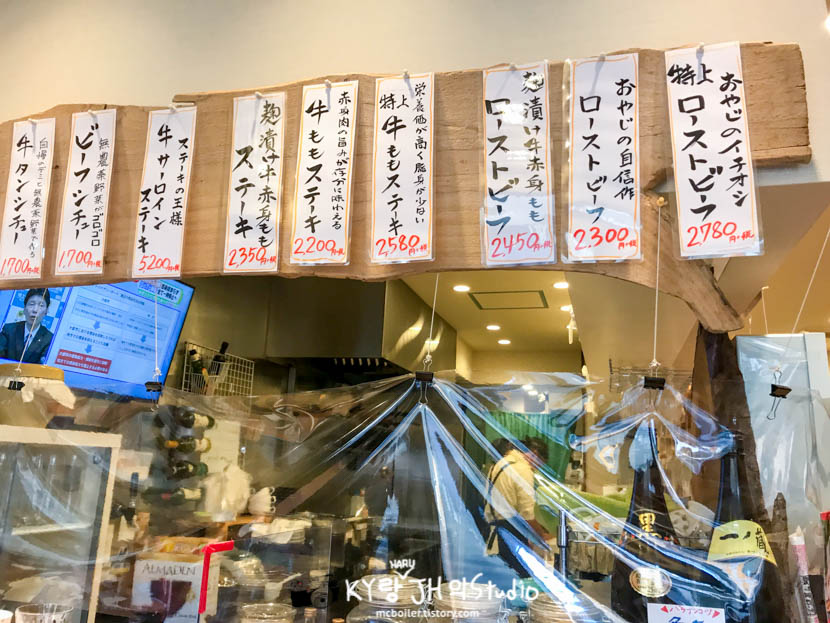 おやじのイチオシ
特上 ローストビーフ
2,780円+税
おやじの自信作
ローストビーフ
2,300円+税
麹漬け牛赤身もも
ローストビーフ
2,450円+税
栄養価が高く脂身が少ない
特上 牛ももステーキ
2,580円+税
赤身肉の旨みが存分に味わえる
牛ももステーキ
2,200円+税
麹漬け牛赤身もも
ステーキ
2,350円+税
ステーキの王様
牛サーロイン
ステーキ
5,200円+税
無農薬野菜がゴロゴロ
ビーフシチュー
1,700円+税
自慢のデミと無農薬野菜で作る
牛タンシチュー
1,700円+税
ALMADEN
黒
HARU
KY랑 JH의 Studio
mcboiler.tistory.com